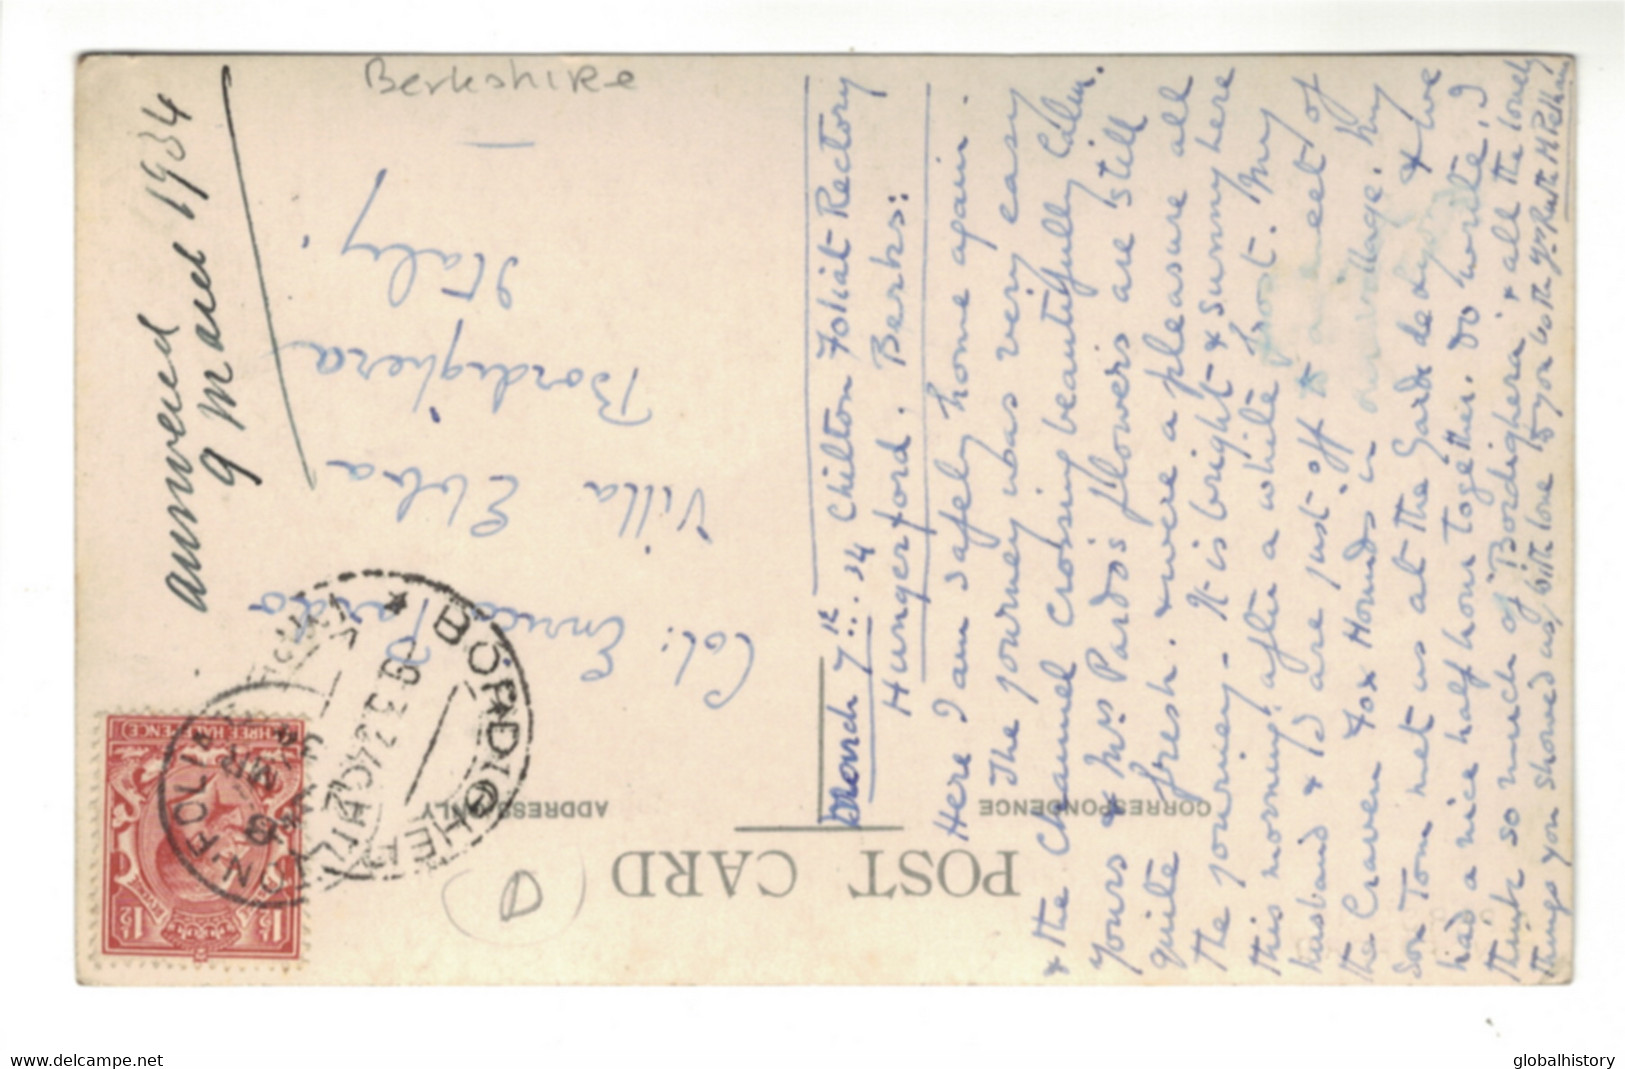 Berkshire
answered
9 March 1934
POST CARD
CORRESPONDENCE
ADDRESS ONLY
March 7th: 34 Chilton Foliat Rectory
Hungerford. Berks:
Here I am safely home again.
The journey was very easy
& the Channel crossing beautifully calm.
Yours & Mrs Pardo's flowers are still
quite fresh. & were a pleasure all
the journey. It is bright & sunny here
this morning after a white frost. My
husband & B are just off to a meet of
the Craven Fox Hounds in our village. My
son Tom met us at the Gare de Lyon & we
had a nice half hour together. Do write. I
think so much of Bordighera & all the lovely
things you showed us, with love to you both yrs Ruth M
Col: Enrico Pardo
Villa Ebba
Bordighera
Italy.
BORDIGHERA
19 3 34
THREE HALFPENCE
1½